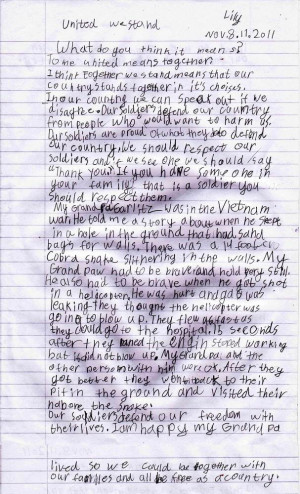 Lily
United we stand
Nov. 8.11.2011
What do you think it means?
To me united means together.
I think together we stand means that our
country stands together in it's choices.
In our country we can speak out if we
disagree. Our soldiers defend our country
from people who would want to harm us.
Our soldiers are proud of what they do to defend
our country. We should respect our
soldiers and if we see one we should say
"Thank you". If you have some one in
your family that is a soldier you
should respect them.
My Grandpa was in the Vietnam
war. He told me a story about when he slept
in a hole in the ground that had sand
bags for walls. There was a 14 foot
Cobra snake slithering in the walls. My
Grand paw had to be brave and hold very still.
He also had to be brave when he got shot
in a helicopter. He was hurt and gas was
leaking they thought the helicopter was
going to blow up. They flew as fast as
they could go to the hospital. 15 seconds
after they landed the engin stoped working
but it did not blow up. My Grandpa and the
other person with him were ok. After they
got better they went back to their
pit in the ground and visited their
neibore the snake.
Our soldiers defend our freedom with
their lives. I am happy my Grandpa
lived so we could be together with
our families and all be free as a country.